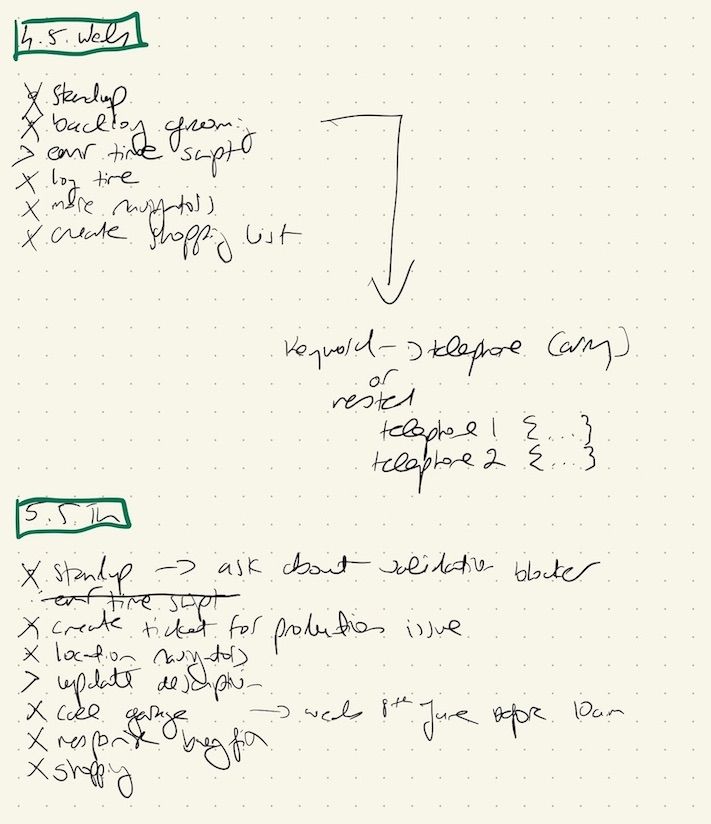 4.5. Weds
X standup
X backlog grooming
> time script
X log time
X more navigators
X create shopping list
keyword -> telephone (array)
or
nested
telephone 1 {...}
telephone 2 {...}
5.5. Th
X standup -> ask about validation blocker
time script
X create ticket for production issue
X location navigators
> update description
X call garage -> weds 8th June before 10am
X response bugfix
X shopping